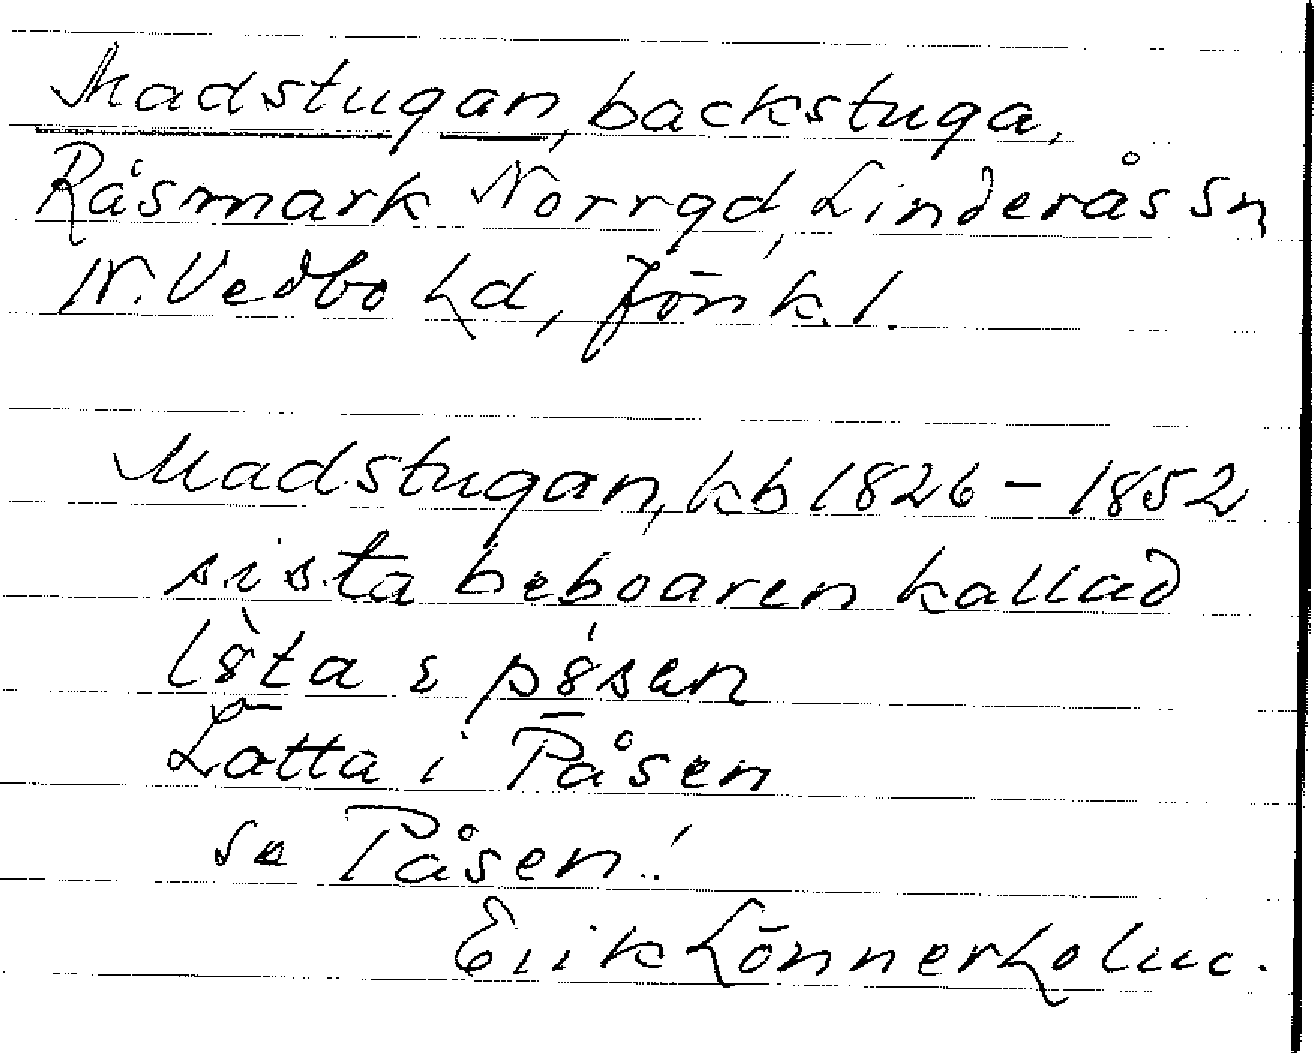 Madstugan, backstuga,
Råsmark Norrgd, Linderås Sn
N. Vedbo hd, Jönk. l.
Madstugan, kb 1826 – 1852
sista beboaren kallad
Lotta i Påsen
se Påsen!
Erik Lönnerholm.